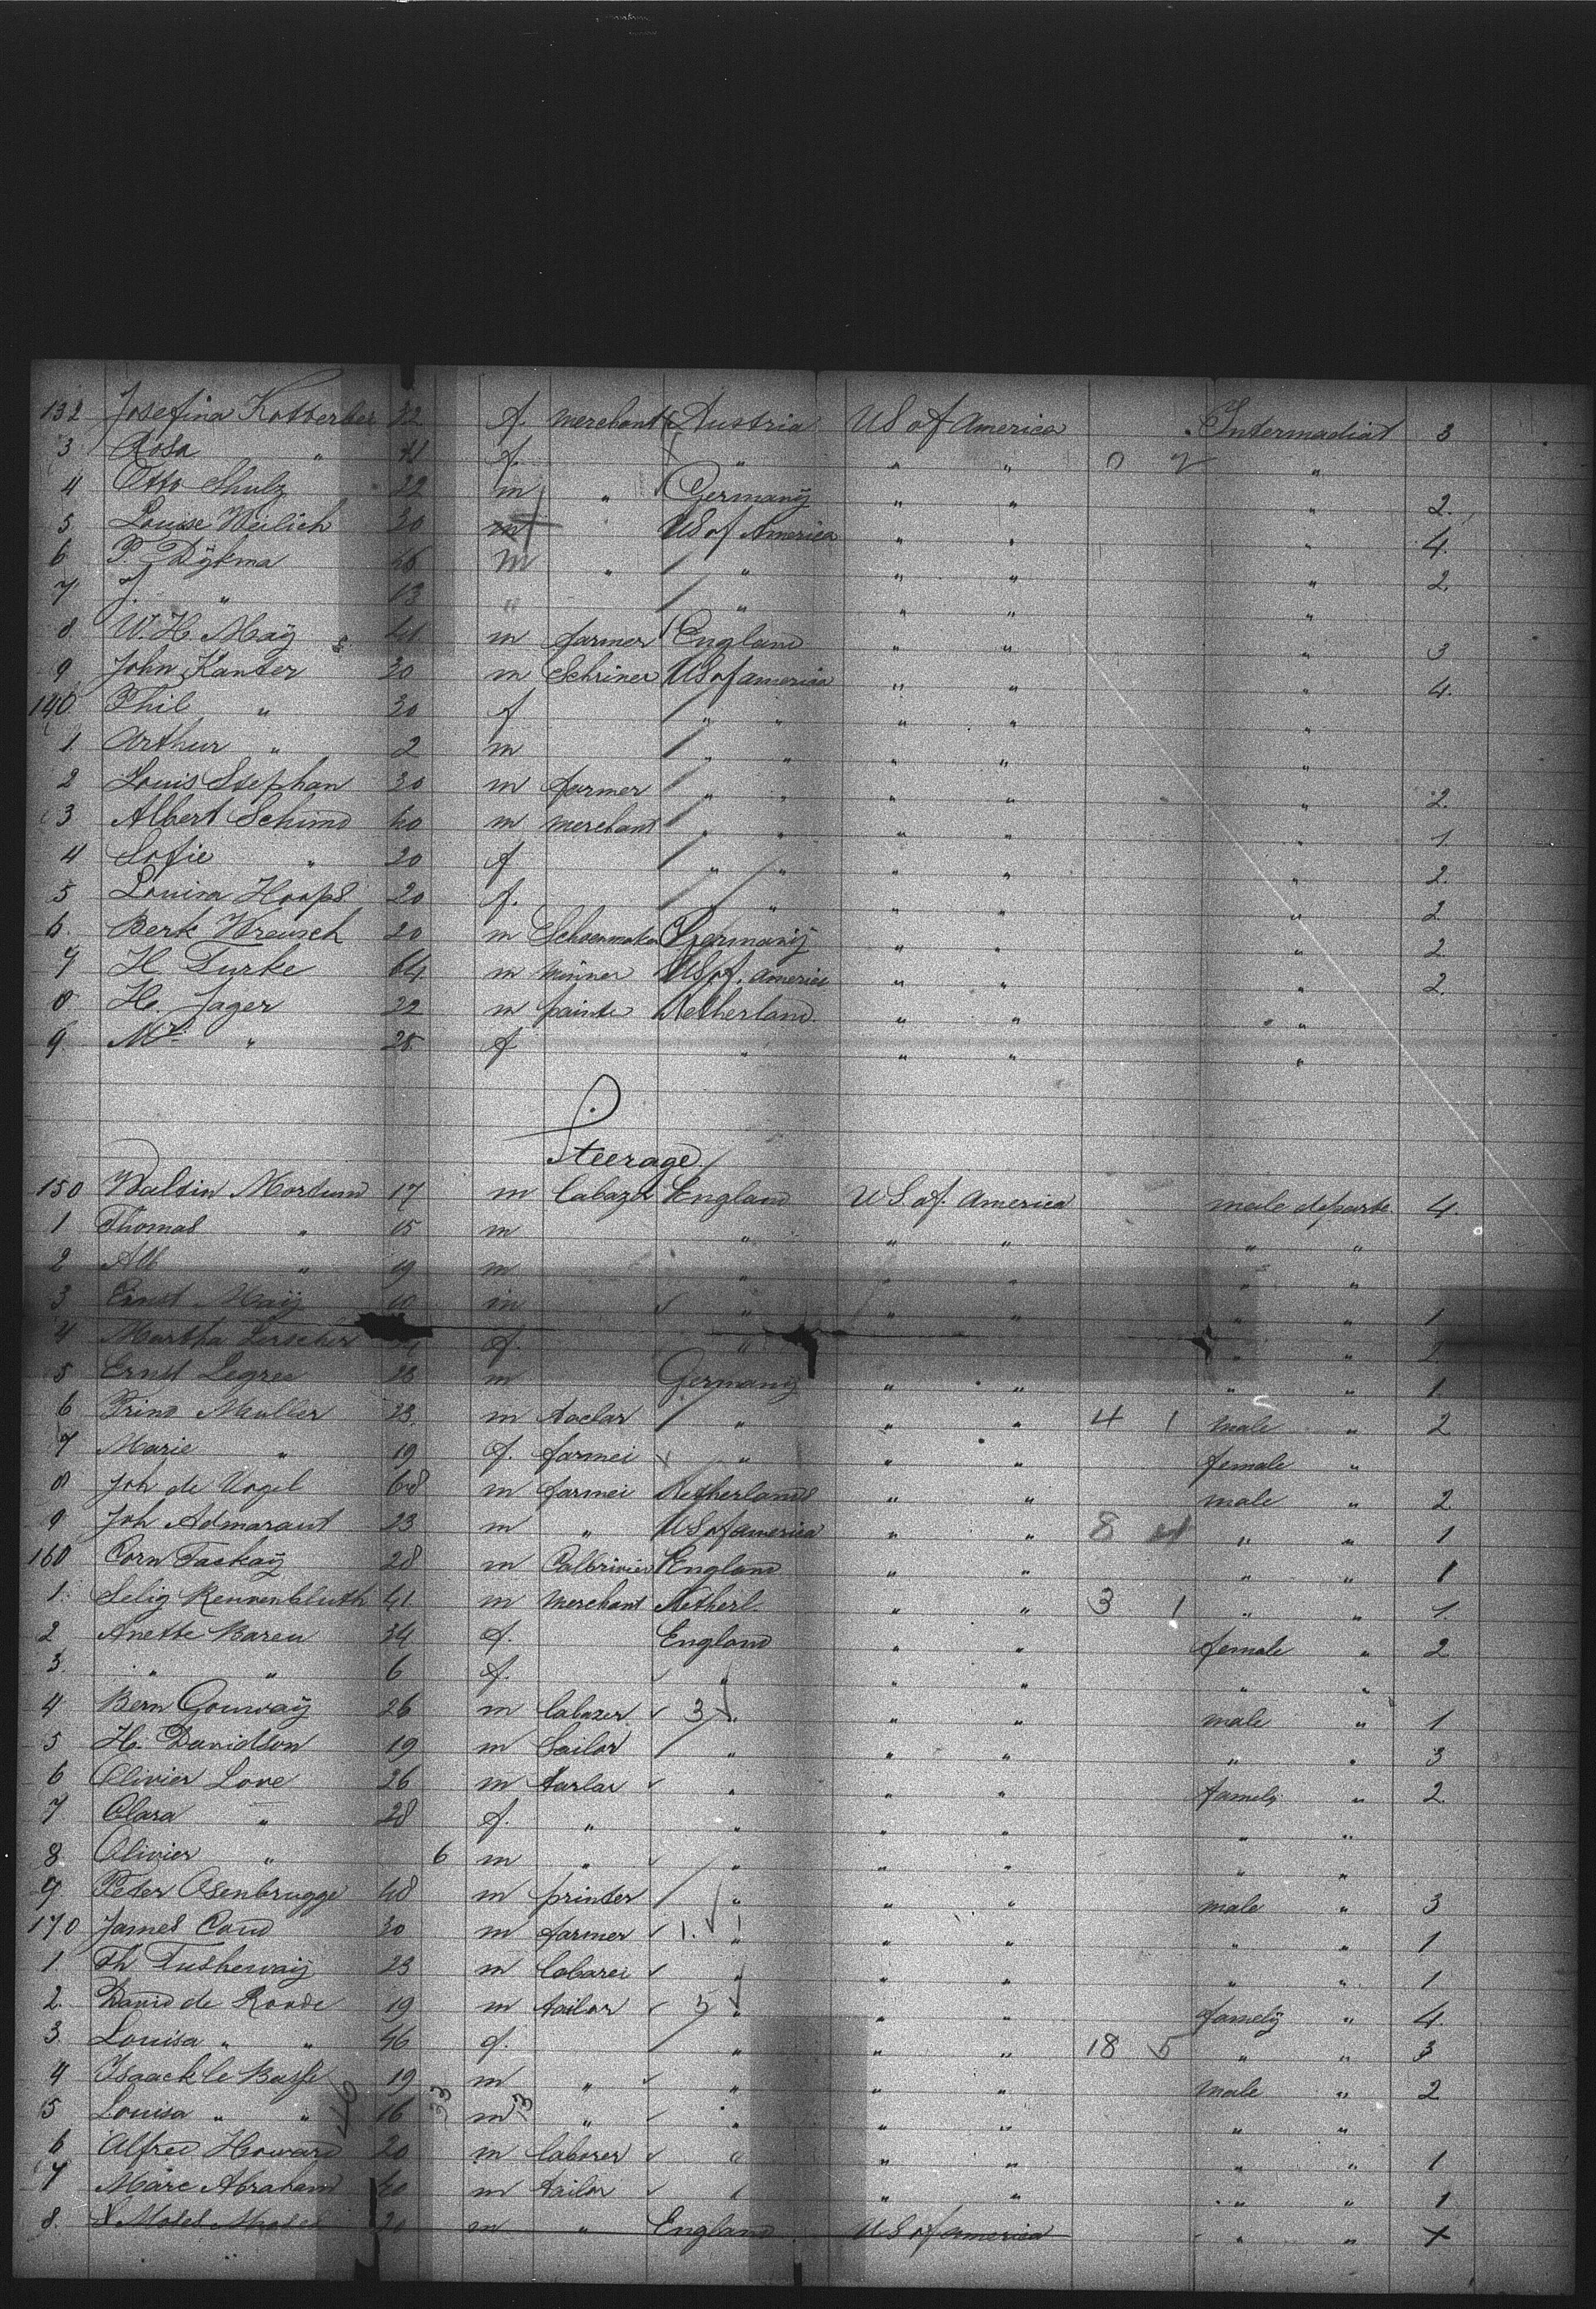 132 Josefina Kotterber 32 f. merchant Austria US of America Intermediat 3
3 Rosa " 41 f. " " " 0 2 "
4 Otto Shulz 22 m " Germany " " " 2.
5 Louise Weilich 30 US of America " " " 4.
6 P. Dÿkma m " " " " " 2.
7 J. " 13 " " " " "
8 W. H. Maÿ m farmer England " " " 3
9 John Kanter 30 m Schriner US of america " " " 4.
140 Phil " 30 f " " " " "
1. Arthur " 2 m " " " " "
2 Louis Stephan 30 m farmer " " " " " 2.
3 Albert Schimd 60 m merchant " " " " " 1.
4 Sofie " 20 f " " " " " 2.
5 Louisa Hoops 20 f. " " " " 2
6. Berk Wreusch 20 m Schoenmaker Germanÿ " " " 2.
7 H Turke 64 m minner US of. america " " " 2.
8 H. Jager 22 m painte Netherland " " "
9. Mr. " 28 f " " " "
Steerage.
150 Waltin Mordum 17 m labazer England US of. America male departe 4.
1 Thomas " 15 m " " " " "
2 Alb " 19 m " " " "
3 Ernst Maÿ 10 m " " " " " 1
4 Martha f. " " " 2
5 Ernst Legree 28 m Germany " " " " 1.
6 Trind Muller 23. m taelar " " " 4 1 male " 2
7 Marie " 19 f. farmei " " " female "
8 Joh de Vogel 68 m farmei Netherlands " " male " 2
9 Joh Admaraut 23 m " US of america " " 8 " " 1
160 Corn Taskaÿ 28 m England " " " " 1
1. Selig Rennenbluth 41 m merchant Netherl. " " 3 1 " " 1.
2 Anette Baren 34 f. England " " female " 2
3. " " 6 f. " " " " "
4 Bern Gonwaÿ 26 m labazer 3 " " " male " 1
5 H. Davidson 19 m Sailor " " " " " 3
6 Olivier Love 26 m tarlar " " " famely " 2.
7 Clara " 28 f. " " " " " "
8 Olivier " 6 m " " " " " "
9. Peter Osenbrugge 48 m printer " " " male " 3
170 James Coud 30 m farmer 1. " " " " " 1
1 Th Tushervaij 23 m labarei " " " " " 1
2. David de Roode 19 m tailor 5 " " " famelÿ " 4.
3. Louisa " " 46 f. " " " 18 5 " " 3
4 Isaack le Basse 19 m " " " " male " 2
5 Louisa " " 16 m " " " " " "
6 Alfred Howard 20 m laborer " " " " " 1
7 Marc Abraham 40 m tailor " " " " " 1
8. S Moses Moses 20 m " England US of america " " x